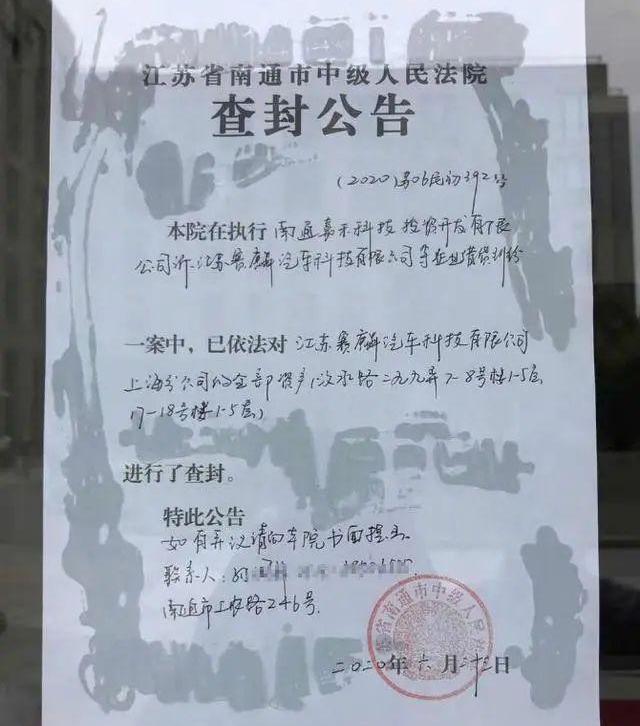 江苏省南通市中级人民法院
查封公告
(2020)苏06民初392号
本院在执行 南通嘉禾科技投资开发有限
公司诉江苏赛麟汽车科技有限公司等企业借贷纠纷
一案中，已依法对 江苏赛麟汽车科技有限公司
上海分公司的全部资产(汶水路二九九弄7-8号楼1-5层
17-18号楼1-5层)
进行了查封。
特此公告
如有异议请向本院书面提出
联系人:
南通市工农路246号.
二〇二〇年 六 月 二十三 日
省南通市中级人民